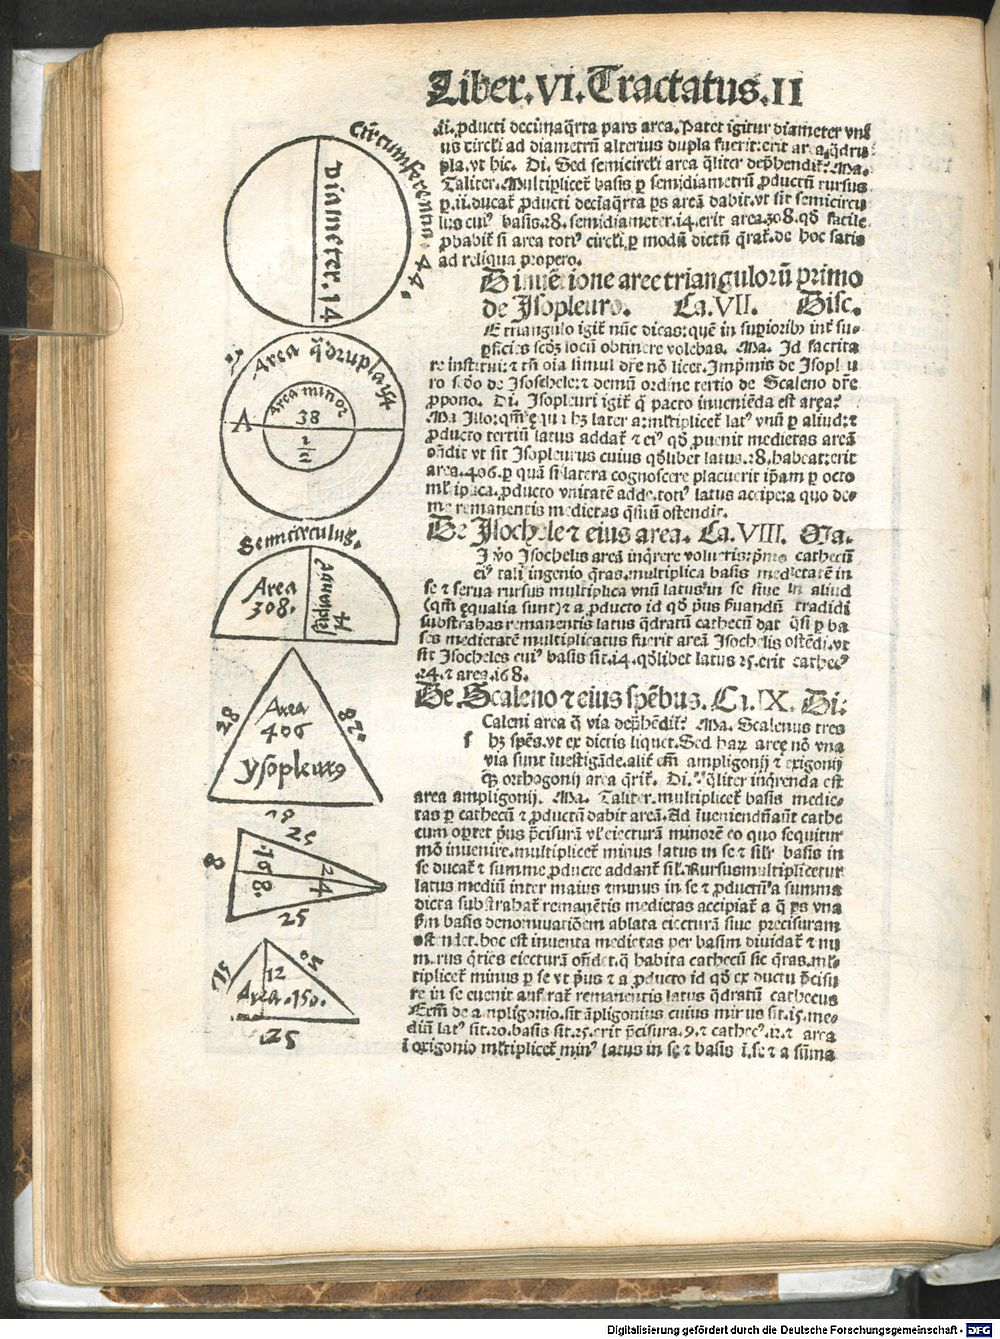 Liber.VI.Tractatus.II
.ii. ꝓducti decimaq̃rta pars area. Patet igitur diameter vniꝰ
us circl'i ad diametrũ alterius dupla fuerit: erit area q̃dru
pla. vt hic. Di. Sed semicircl'i area q̃liter dep̃hendit᷑? Ma.
Taliter. Multiplicet᷑ basis ꝑ semidiametrũ ꝓductũ rursus
ꝑ .ii. ducat᷑ ꝓducti decĩaq̃rta ps areã dabit. vt sit semicircu
lus cuiꝰ basis .28. semidiameter .14. erit area .308. qđ facile
ꝓbabit᷑ si area totiꝰ circl'i ꝑ modũ dictũ q̃rat᷑. de hoc satis
ad reliqua propero.
D inuẽtione aree triangulorũ primo
de Isopleuro. Ca.VII. Disc.
E triangulo igit᷑ nũc dicas: quẽ in suꝑiorib' int᷑ su-
ꝑficies scđʒ locũ obtinere volebas. Ma. Id factita
re institui: ⁊ tñ oĩa simul dr̃e nõ licet. Imp̃mis de Isopleu
ro scđo de Isoschele: ⁊ demũ ordine tertio de Scaleno dr̃e
ꝓpono. Di. Isopleuri igit᷑ q̃ pacto inueniẽda est area?
Ma Illo: qm̃ equa hʒ latera: mltiplicet᷑ latꝰ vnũ ꝑ aliud: ⁊
ꝓducto tertiũ latus addat᷑ ⁊ eiꝰ qđ ꝓuenit medietas areã
oñdit vt sit Isopleurus cuius qđlibet latus .28. habeat: erit
area .406. ꝑ quã si latera cognoscere placuerit ip̃am ꝑ octo
ml'tiplica. ꝓducto vnitatẽ adde. totiꝰ latus accipe: a quo de-
me remanentis medietas q̃situ ostendit.
De Isochele ⁊ eius area. Ca.VIII. Ma.
I ṽo Isochelis areã inq̃rere volueris: p̃mo cathecũ
eiꝰ tali ingenio q̃ras. multiplica basis medietatẽ in
se ⁊ serua rursus multiplica vnũ latus in se siue in aliud
(qm̃ equalia sunt) ⁊ a ꝓducto id qđ p̃us ẜuandũ tradidi
substrahas remanentis latus q̃dratũ cathecũ dat q̃ si ꝑ ba
ses medietatẽ multiplicatus fuerit areã Isochelis ostẽdi. vt
sit Isocheles cuiꝰ basis sit .14. qđlibet latus 25. erit cathecꝰ
.24. ⁊ area .168.
De Scaleno ⁊ eius spẽbus. Ca.IX. Di:
Caleni area q̃ via dep̃hẽdit᷑? Ma. Scalenus tres
s hʒ spẽs. vt ex dictis liquet. Sed haꝝ areę nõ vna
via sunt ĩuestigãde. alit᷑ em̃ ampligonij ⁊ exigonij
q̃ʒ orthogonij area q̃rit᷑. Di. Q̃liter inq̃renda est
area ampligonij. Ma. Taliter. multiplicet᷑ basis medie-
tas ꝑ cathecũ ⁊ ꝓductum dabit areã. Ad ĩueniendũ aũt cathe
cum oꝑtet p̃us p̃cisurã vl' eiecturã minorẽ eo quo sequitur
mõ inuenire. multiplicet᷑ minus latus in se ⁊ sil'r basis in
se ducat᷑ ⁊ summe ꝓducte addant᷑ sil'. Rursus multiplicetur
latus mediũ inter maius ⁊ minus in se ⁊ ꝓductũ a summa
dicta substrahat᷑ remanẽtis medietas accipiat᷑ a q̃ ꝑs vna
ẜm basis denominatiõem ablata eiecturã siue precisuram
ostendet. hoc est inuenta medietas per basim diuidat᷑ ⁊ nu
merus q̃ties eiecturã oñdet. q̃ habita cathecũ sic q̃ras. ml-
tiplicet᷑ minus ꝑ se vt p̃us ⁊ a ꝓducto id qđ ex ductu p̃cisu
re in se euenit auferat᷑ remanentis latus q̃dratũ cathecus
Exm̃ de ampligonio. sit ãpligonius cuius minus sit .15. me-
diũ latꝰ sit .20. basis sit .25. erit p̃cisura .9. ⁊ cathecꝰ .12. ⁊ area
ĩ oxigonio mltiplicet᷑ minꝰ latus in se ⁊ basis ĩ se ⁊ a sũma
Circumferentia. 44.
Diameter. 14
Area q̃drupla 154
A
Area minor
38
1
2
Semicirculus.
Area
308.
Semidia
14
Area
406
ysopleurꝰ
28
28
28
25
8
168.
24
25
15
20
12
Area .150.
25
Digitalisierung gefördert durch die Deutsche Forschungsgemeinschaft - DFG